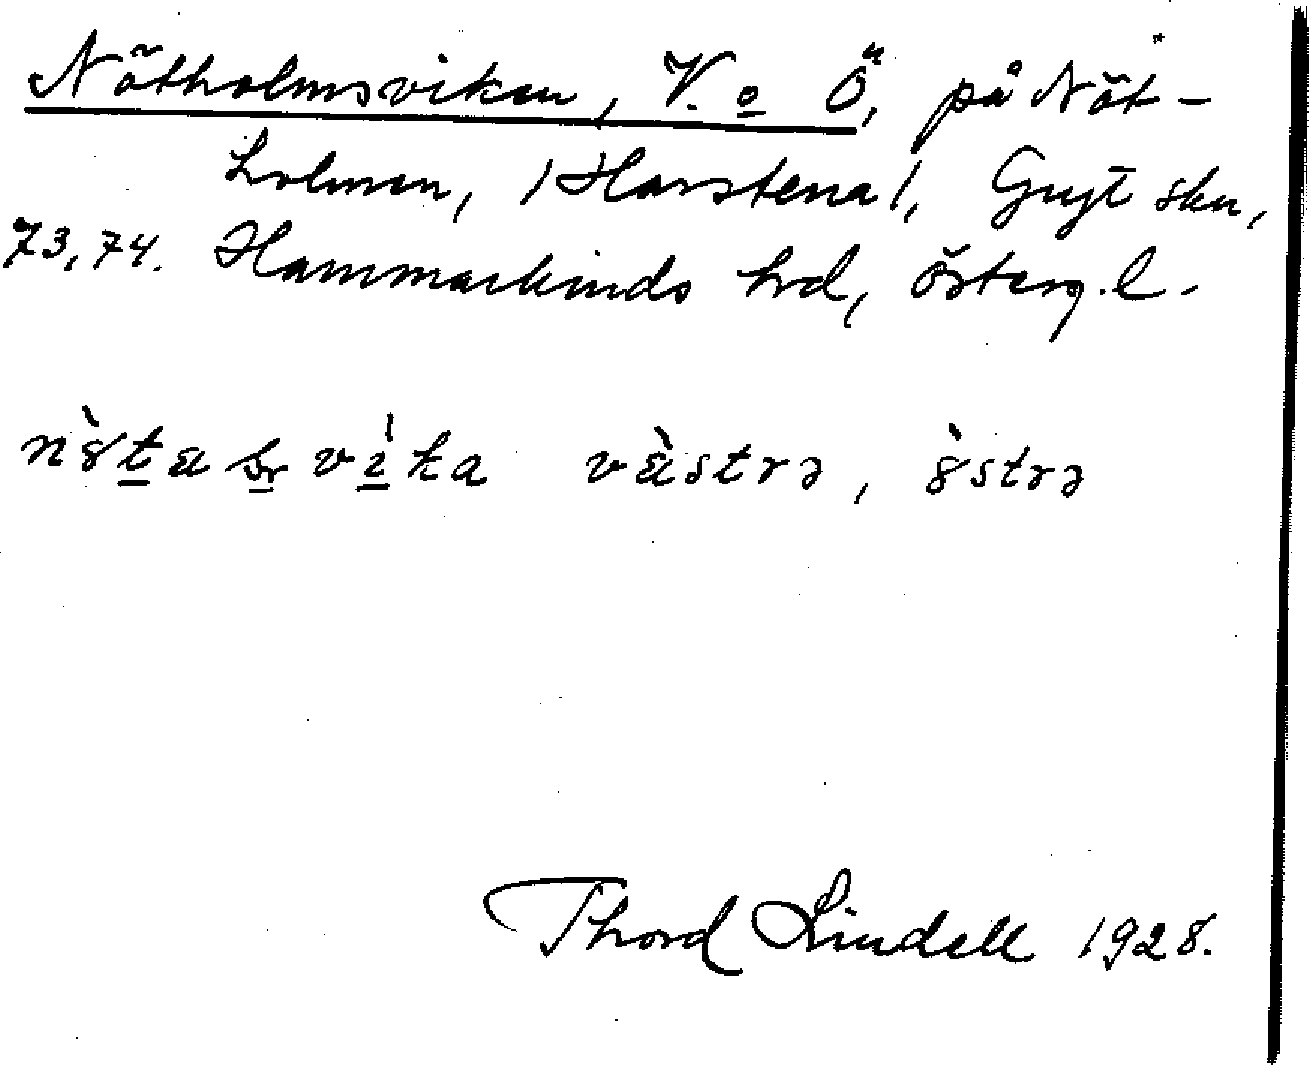 Nötholmsviken, V. o Ö, på Nöt-
holmen, /Harstena/, Gryt skn,
73, 74. Hammarkinds hrd, Österg. l.
västrə, östrə
Thord Lindell 1928.